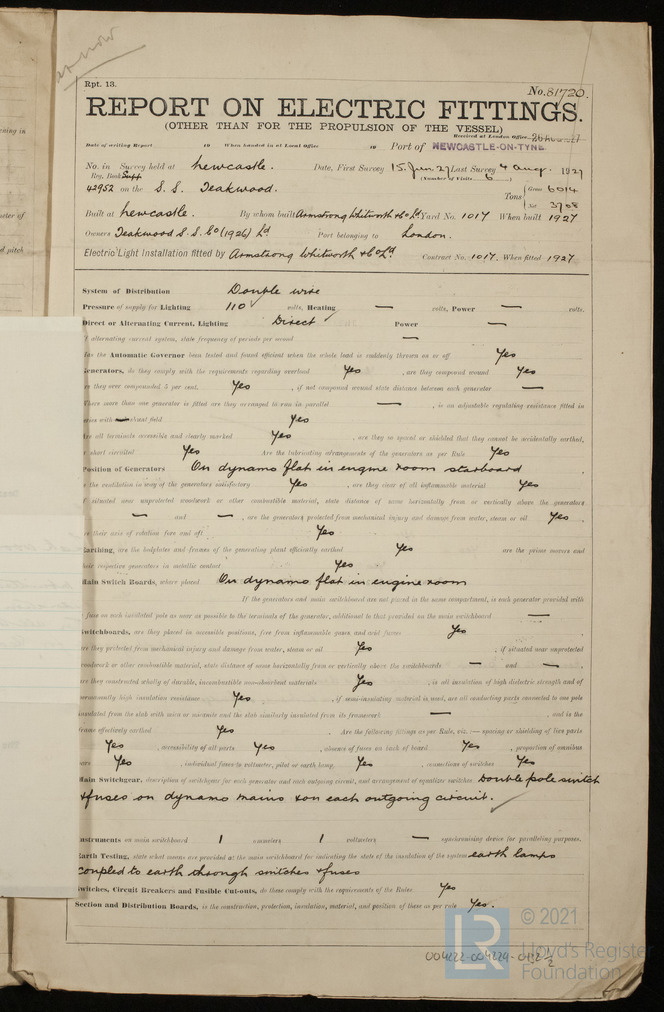 Rpt. 13.
No. 81720.
REPORT ON ELECTRIC FITTINGS.
(OTHER THAN FOR THE PROPULSION OF THE VESSEL)
Received at London Office
Date of writing Report 19 When handed in at Local Office 19 Port of NEWCASTLE-ON-TYNE
No. in Survey held at Newcastle. Date, First Survey 15. Jun. 27 Last Survey 4 Aug. 1927
Reg. Book Supp (Number of Visits 6)
42952 on the S.S. Teakwood. Tons { Gross 6014
Net 3708
Built at Newcastle. By whom built Armstrong Whitworth & Co Ld Yard No. 1017 When built 1927
Owners Teakwood S.S. Co (1926) Ld Port belonging to London.
Electric Light Installation fitted by Armstrong Whitworth & Co Ld. Contract No. 1017. When fitted 1927
System of Distribution Double wire
Pressure of supply for Lighting 110 volts, Heating — volts, Power — volts.
Direct or Alternating Current, Lighting Direct Power —
If alternating current system, state frequency of periods per second —
Has the Automatic Governor been tested and found efficient when the whole load is suddenly thrown on or off Yes
Generators, do they comply with the requirements regarding overload Yes, are they compound wound Yes
are they over compounded 5 per cent. Yes, if not compound wound state distance between each generator —
Where more than one generator is fitted are they arranged to run in parallel —, is an adjustable regulating resistance fitted in
series with shunt field Yes
Are all terminals accessible and clearly marked Yes, are they so spaced or shielded that they cannot be accidentally earthed,
or short circuited Yes Are the lubricating arrangements of the generators as per Rule Yes
Position of Generators On dynamo flat in engine room starboard
is the ventilation in way of the generators satisfactory Yes, are they clear of all inflammable material Yes
if situated near unprotected woodwork or other combustible material, state distance of same horizontally from or vertically above the generators
— and —, are the generators protected from mechanical injury and damage from water, steam or oil Yes.
are their axis of rotation fore and aft Yes
Earthing, are the bedplates and frames of the generating plant efficiently earthed Yes are the prime movers and
their respective generators in metallic contact Yes
Main Switch Boards, where placed On dynamo flat in engine room
If the generators and main switchboard are not placed in the same compartment, is each generator provided with
a fuse on each insulated pole as near as possible to the terminals of the generator, additional to that provided on the main switchboard —
Switchboards, are they placed in accessible positions, free from inflammable gases and acid fumes Yes
are they protected from mechanical injury and damage from water, steam or oil Yes, if situated near unprotected
woodwork or other combustible material, state distance of same horizontally from or vertically above the switchboards — and —,
are they constructed wholly of durable, incombustible non-absorbent materials Yes, is all insulation of high dielectric strength and of
permanently high insulation resistance Yes, if semi-insulating material is used, are all conducting parts connected to one pole
insulated from the slab with mica or micanite and the slab similarly insulated from its framework —, and is the
frame effectively earthed Yes Are the following fittings as per Rule, viz.:— spacing or shielding of live parts
Yes, accessibility of all parts Yes, absence of fuses on back of board Yes, proportion of omnibus
bars Yes, individual fuses to voltmeter, pilot or earth lamp, Yes, connections of switches Yes
Main Switchgear, description of switchgear for each generator and each outgoing circuit, and arrangement of equalizer switches Double pole switch
& fuses on dynamo mains & on each outgoing circuit.
Instruments on main switchboard 1 ammeters 1 voltmeters — synchronising device for paralleling purposes.
Earth Testing, state what means are provided at the main switchboard for indicating the state of the insulation of the system earth lamps
coupled to earth through switches & fuses
Switches, Circuit Breakers and Fusible Cut-outs, do these comply with the requirements of the Rules Yes
Section and Distribution Boards, is the construction, protection, insulation, material, and position of these as per rule Yes.
LR © 2021
Lloyd's Register
Foundation